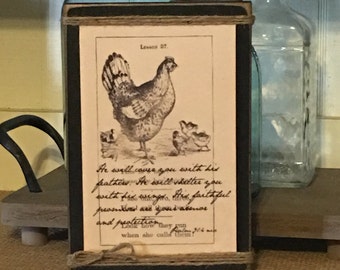 Lesson 27.
He will cover you with his
feathers. He will shelter you
with his wings. His faithful
promises are your armor
and protection.
Psalm 91:4
Look how they
when she called them!